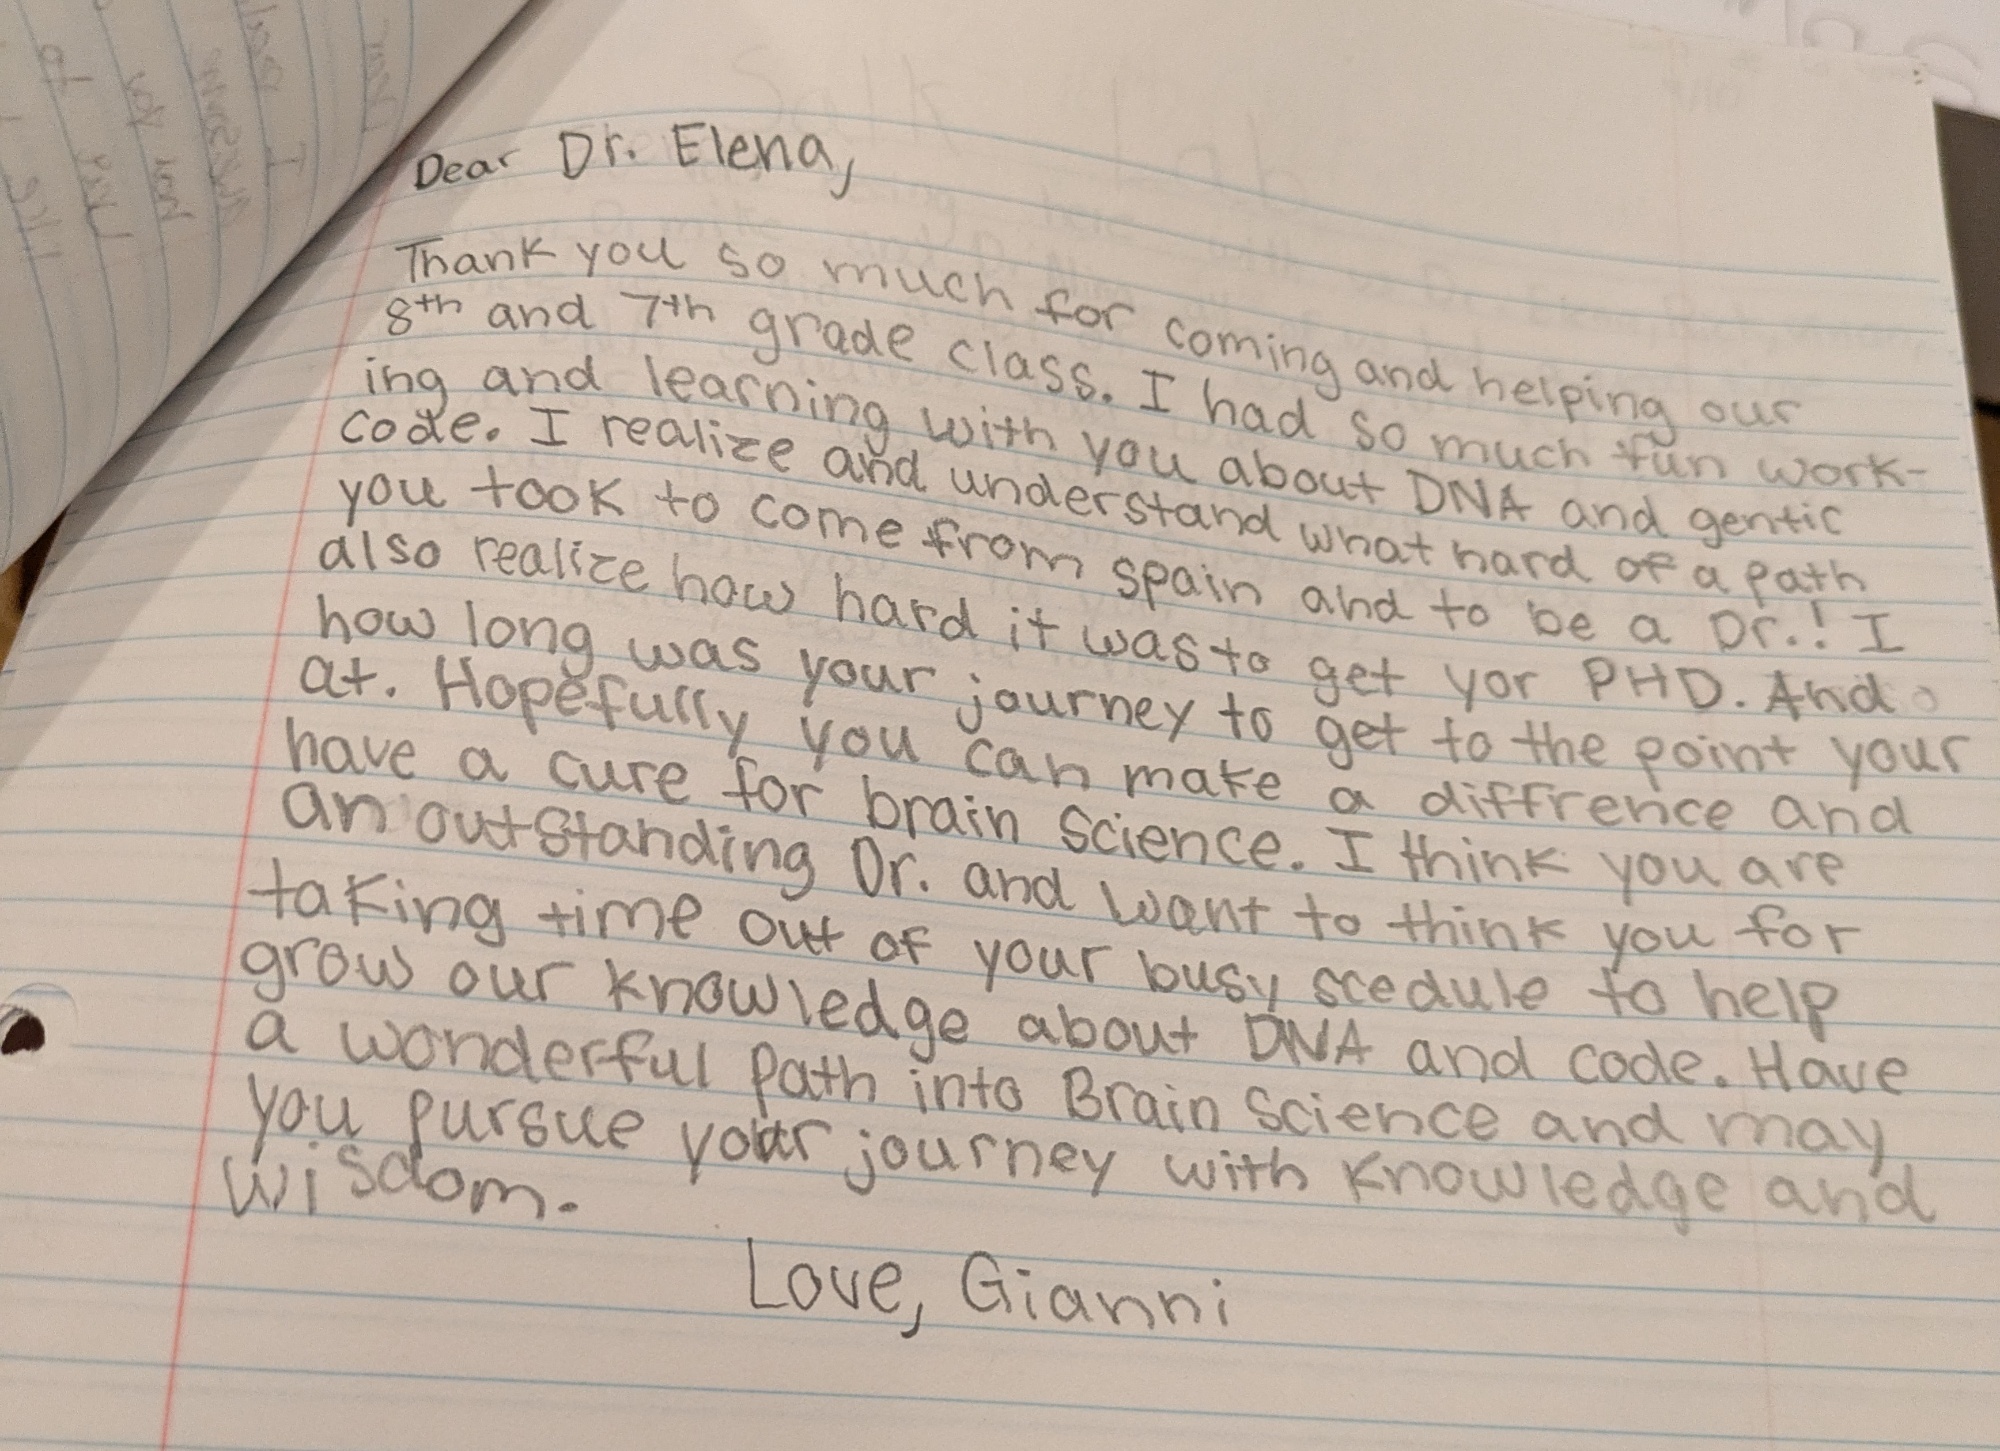 Dear Dr. Elena,
Thank you so much for coming and helping our
8th and 7th grade class. I had so much fun work-
ing and learning with you about DNA and gentic
code. I realize and understand what hard of a path
you took to come from spain and to be a Dr.! I
also realize how hard it was to get yor PHD. And
how long was your journey to get to the point your
at. Hopefully you can make a diffrence and
have a cure for brain science. I think you are
an outstanding Dr. and want to think you for
taking time out of your busy scedule to help
grow our knowledge about DNA and code. Have
a wonderful path into Brain Science and may
you pursue your journey with knowledge and
wisdom.
Love, Gianni